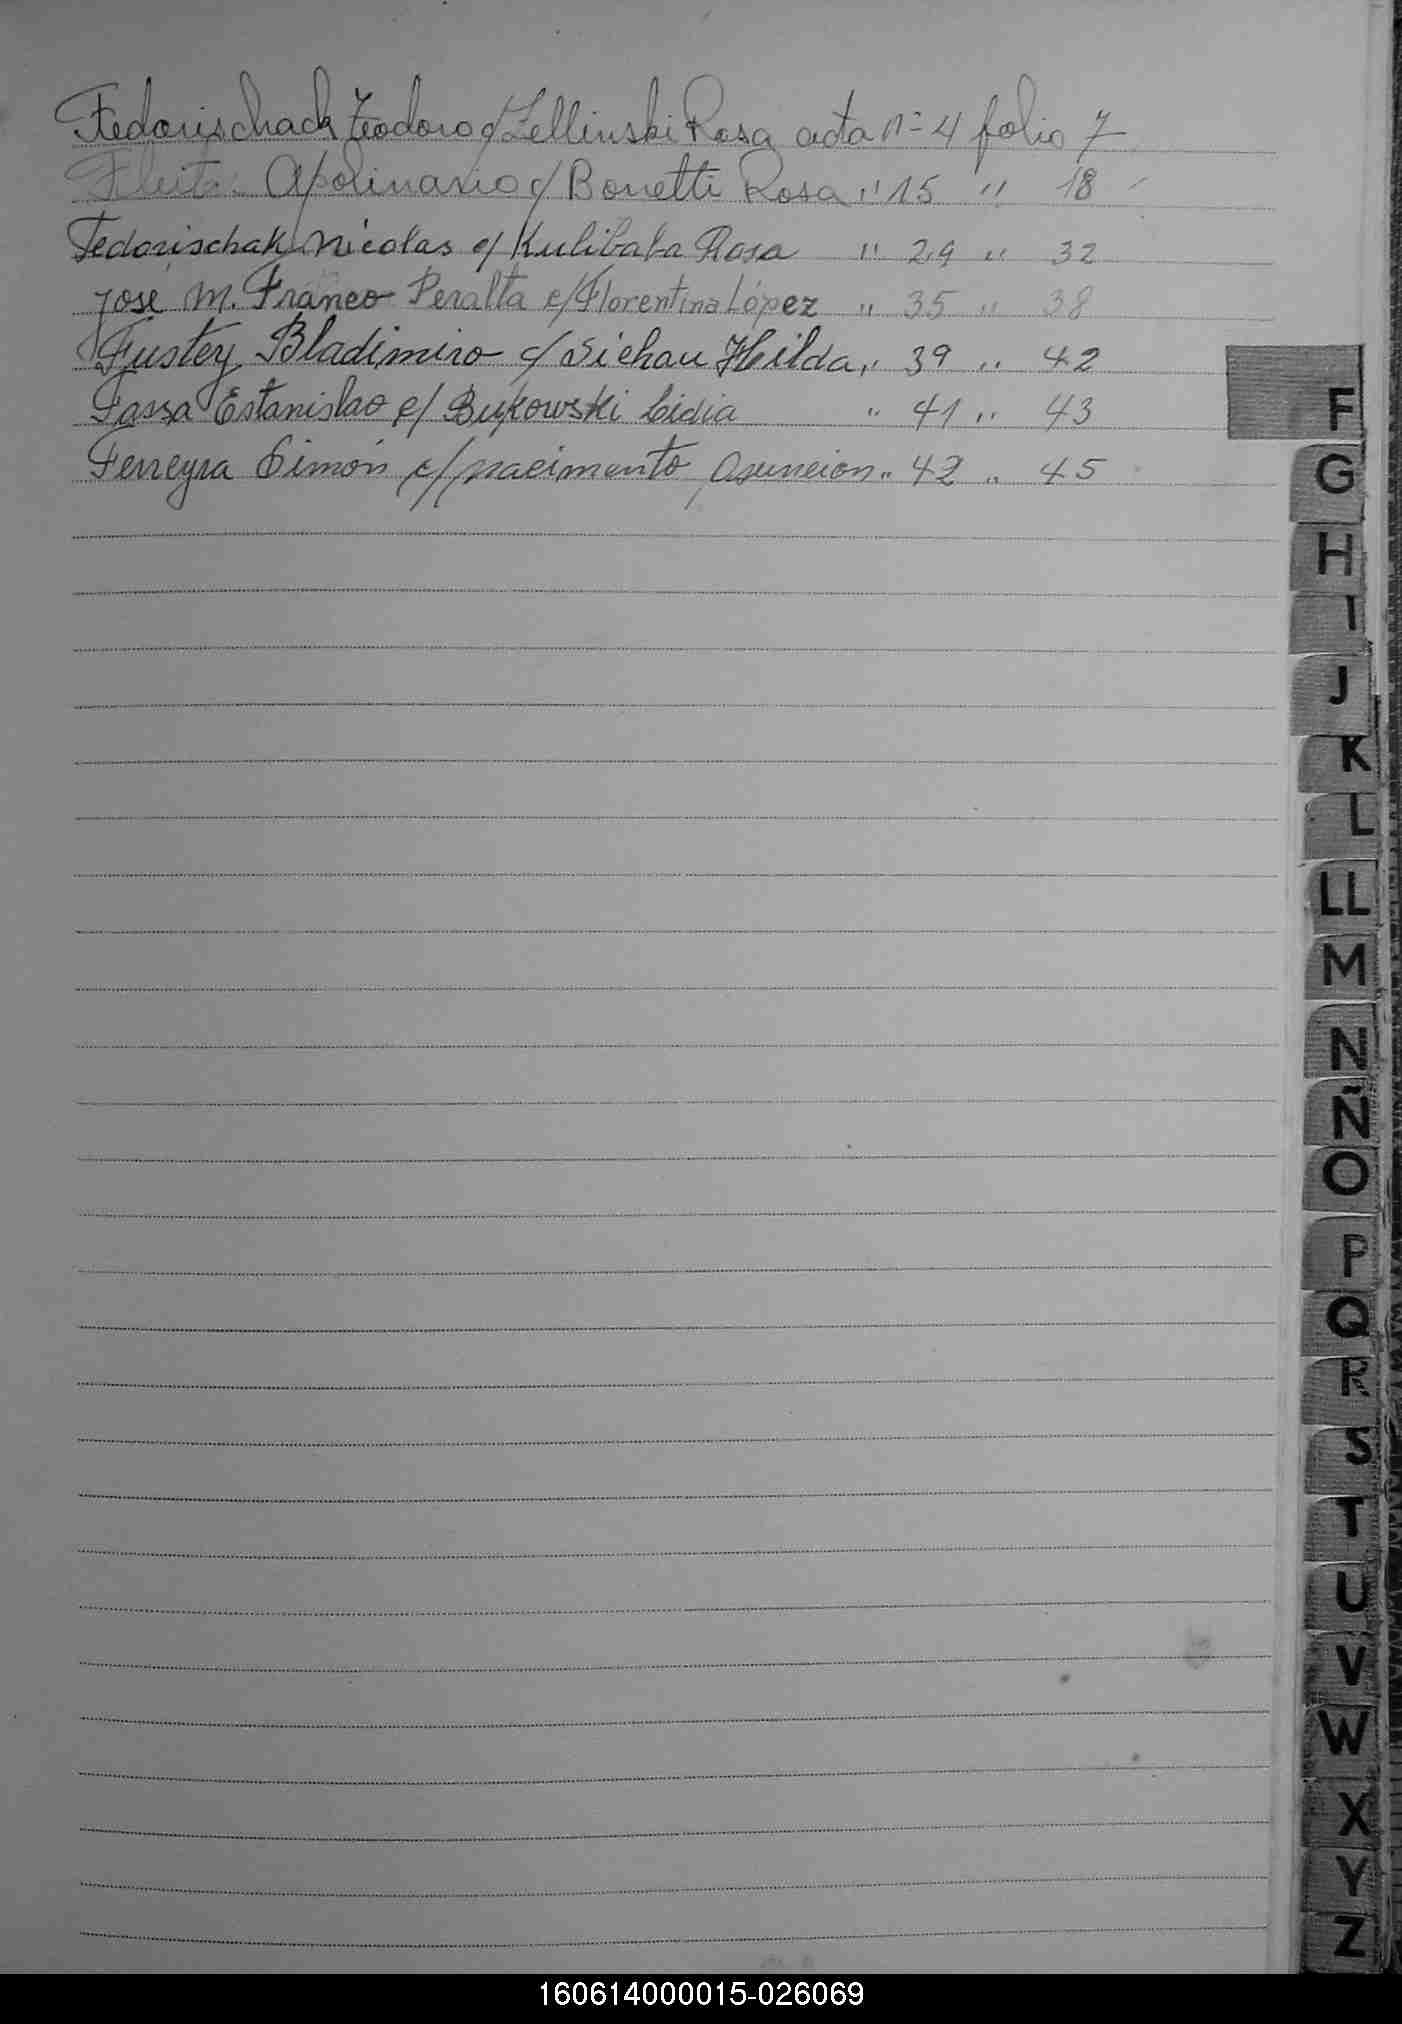 Fedorischack Teodoro c/ Zellinski Rosa acta nº 4 folio 7
Fleita Apolinario c/ Bonetti Rosa " 15 " 18
Fedorischak Nicolas c/ Kulibaba Rosa " 29 " 32
José M. Franco Peralta c/ Florentina López " 35 " 38
Fustey Bladimiro c/ Siehau Hilda " 39 " 42
Fassa Estanislao c/ Bukowski Lidia " 41 " 43
Ferreyra Simón c/ nacimento Asuncion " 42 " 45
F
G
H
I
J
K
L
LL
M
N
Ñ
O
P
Q
R
S
T
U
V
W
X
Y
Z
160614000015-026069